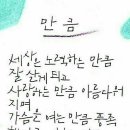 만큼
세상은 노래하는 만큼
잘 살게 되고
사랑하는 만큼 아름다워
지며
가슴은 여는 만큼 풍족